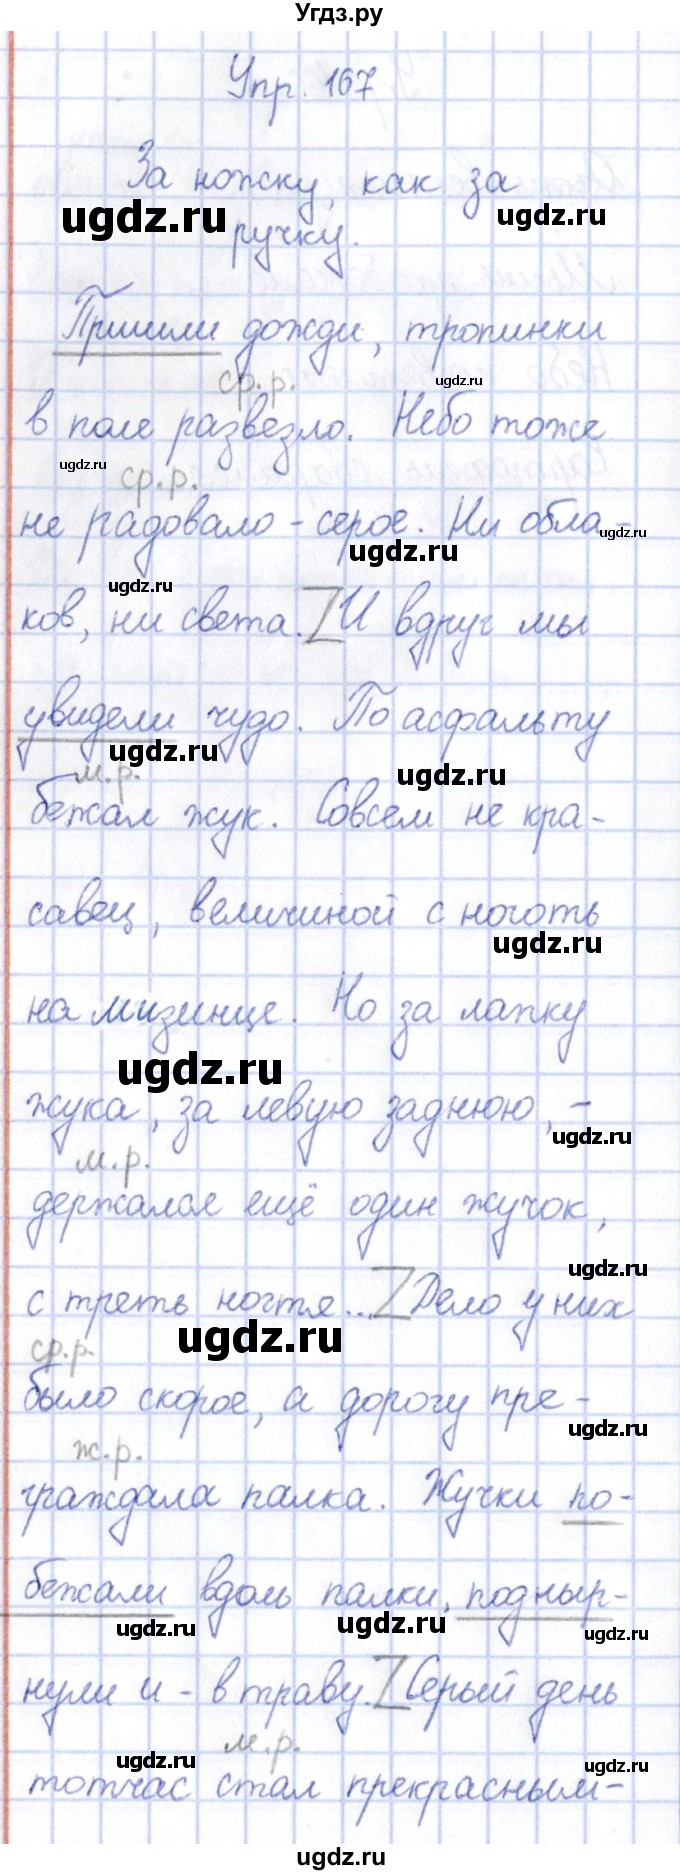 Угдз.ру
Упр. 167
За ножку, как за
ugdz.ru ugdz.ru
ручку.
Пришли дожди, тропинки
ср.р. ugdz.ru
в поле развезло. Небо тоже
ugdz.ru ср.р.
не радовало - серое. Ни обла-
ugdz.ru ugdz.ru
ugdz.ru
ков, ни света. Z И вдруг мы
увидели чудо. По асфальту
ugdz.ru ugdz.ru
м.р.
бежал жук. Совсем не кра-
савец, величиной с ноготь
ugdz.ru
на мизинце. Но за лапку
ugdz.ru
жука, за левую заднюю, -
ugdz.ru
м.р.
держался ещё один жучок,
ugdz.ru
с треть ногтя... Z Дело у них
ugdz.ru
ср.р.
было скорое, а дорогу пре-
ugdz.ru
ж.р.
граждала палка. Жучки по-
бежали вдоль палки, подныр-
ugdz.ru ugdz.ru ugdz.ru
нули и - в траву. Z Серый день
м.р.
ugdz.ru ugdz.ru
тотчас стал прекрасным-
ugdz.ru